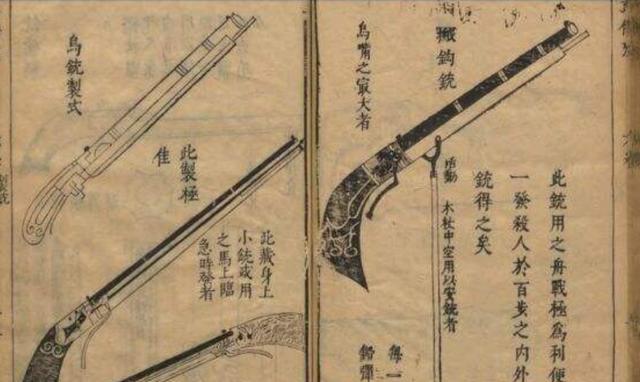 鈎銃
鳥嘴之㝡大者
此銃用之舟戰極為利便
一發殺人於百步之内外
銃得之矣
木杖中空用以安銃者
每一
鉛彈
此藏身上
小銃或用
之馬上臨
急時發者
此製極
佳
鳥銃製式